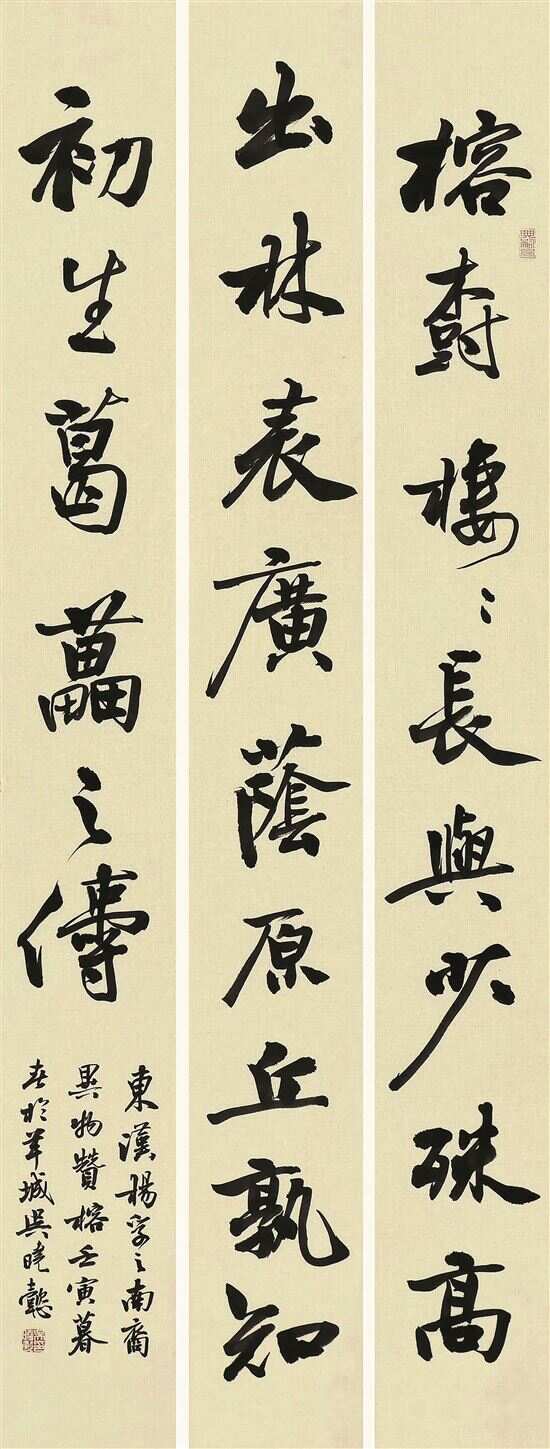 榕樹棲〻長與少殊高
出林表廣蔭原丘孰知
初生葛藟之儔
東漢楊孚之南裔
異物贊榕壬寅暮
春於羊城吳曉懿